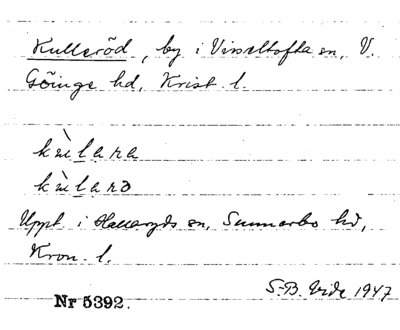 Kulleröd, by i Visseltofta sn, V.
Göinge hd, Krist. l.
kùlara
kùlarə
Uppt. i Hallaryds sn, Sunnerbo hd,
Kron. l.
S.-B. Vide 1947
Nr 5392.